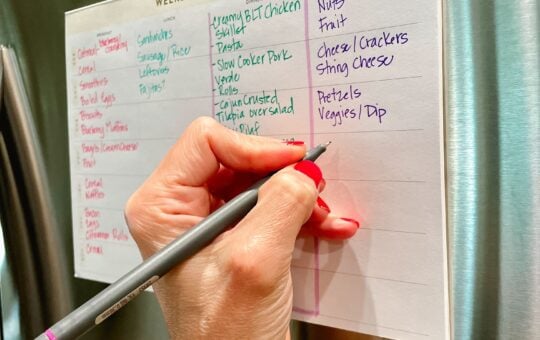 WEEK
BREAKFAST
LUNCH
Cereal
Smoothies
Boiled Eggs
Biscuits
Blueberry Muffins
Bagels/Cream Cheese
Fruit
Cereal
Waffles
Bacon
Eggs
Cinnamon Rolls
Cereal
Sandwiches
Sausage/Rice
Leftovers
Fajitas
Creamy BLT Chicken
Skillet
Pasta
Slow Cooker Pork
Verde
Rolls
Cajun Crusted
Tilapia over salad
Pilaf
Nuts
Fruit
Cheese/Crackers
String Cheese
Pretzels
Veggies/Dip